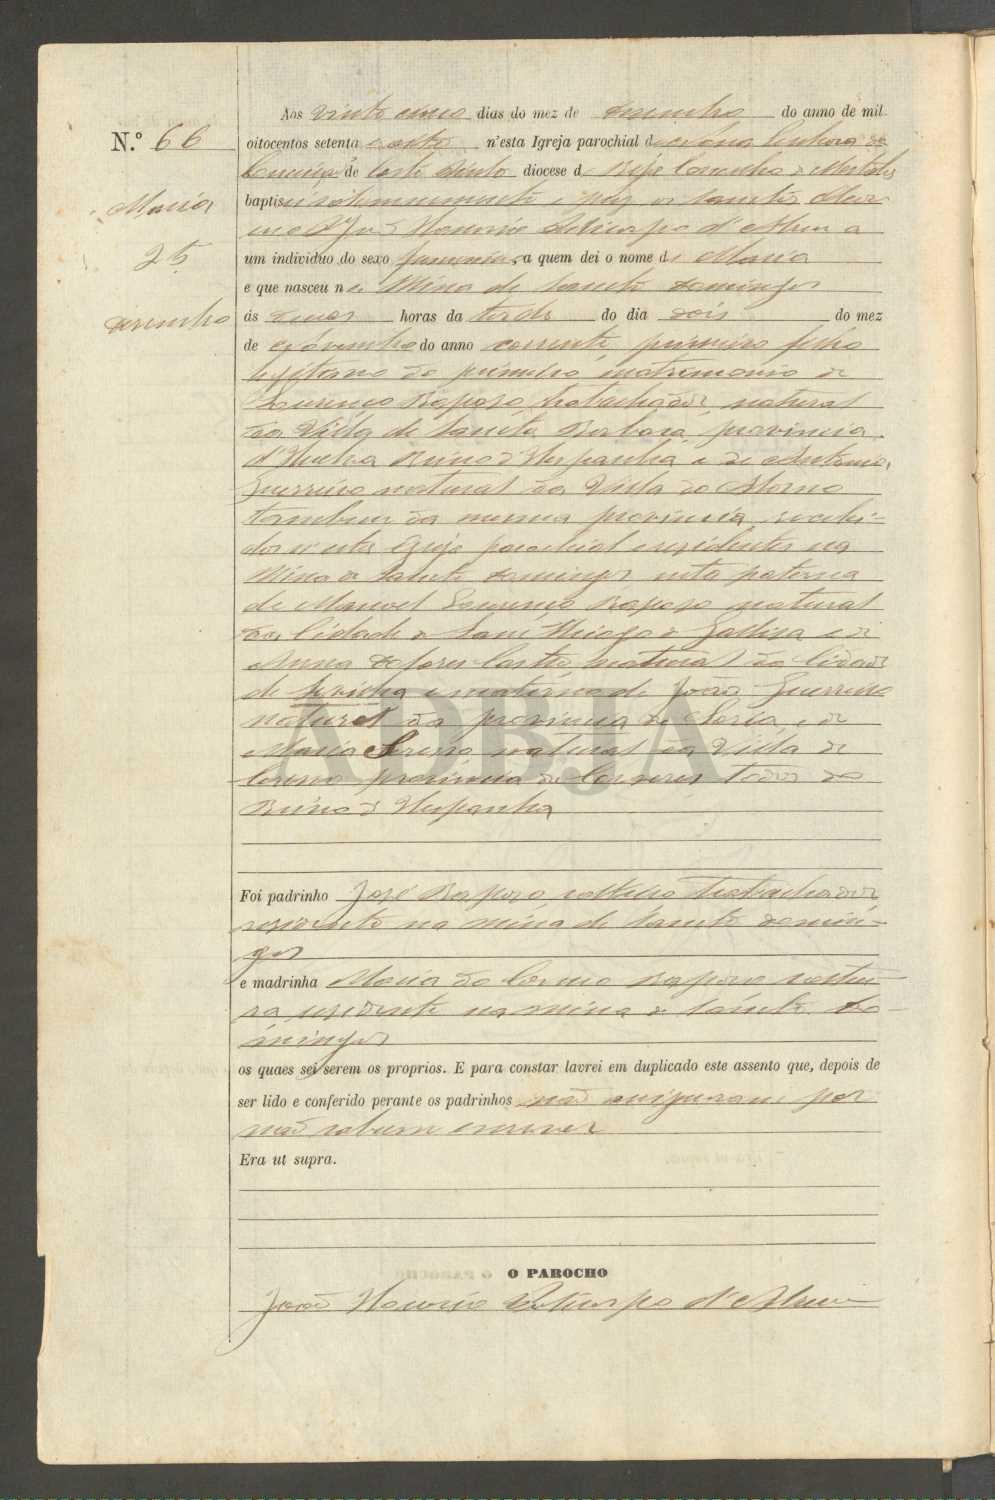 Aos vinte cinco dias do mez de Dezembro do anno de mil
N.º 66
oitocentos setenta e oito n'esta Igreja parochial de Nossa Senhora da
Conceição de diocese de Beja Concelho de Mertola
Maria
baptisei solemnemente e puz os Sanctos Oleos
eu João Honorio d'
25
um individuo do sexo femenino, a quem dei o nome de Maria
e que nasceu na Mina de Sancto Domingos
Dezembro
ás horas da tarde do dia dois do mez
de Novembro do anno corrente, primeiro filho
legitimo do primeiro matrimonio de
Lourenço Raposo, trabalhador, natural
da Villa de Sancta Barbara, provincia
d'Huelva Reino d'Hespanha e de Antonia
Guerreiro natural da Villa do
tambem da mesma provincia, recebi-
dos n'esta Igreja parochial e residentes na
Mina de Sancto Domingos neta paterna
de Manoel Lourenço Raposo natural
da Cidade de Sam Thiago de Galliza e de
Anna Dolores Castro, natural da Cidade
de Sevilha e materna de João Guerreiro
natural da provincia de Soria, e de
Maria natural da Villa de
provincia de Caceres todos do
Reino d'Hespanha
Foi padrinho José Raposo, solteiro trabalhador
residente na Mina de Sancto Domin-
gos
e madrinha Maria do Carmo Raposo soltei-
ra, residente na Mina de Sancto Do-
mingos
os quaes sei serem os proprios. E para constar lavrei em duplicado este assento que, depois de
ser lido e conferido perante os padrinhos não assignaram por
não saberem escrever
Era ut supra.
O PAROCHO
João Honorio d'
ADBJA